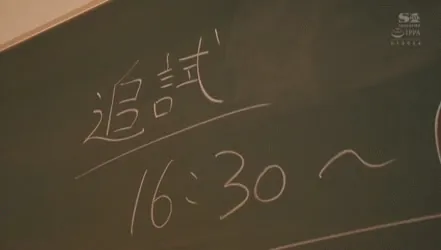 追試
16:30～
IPPA